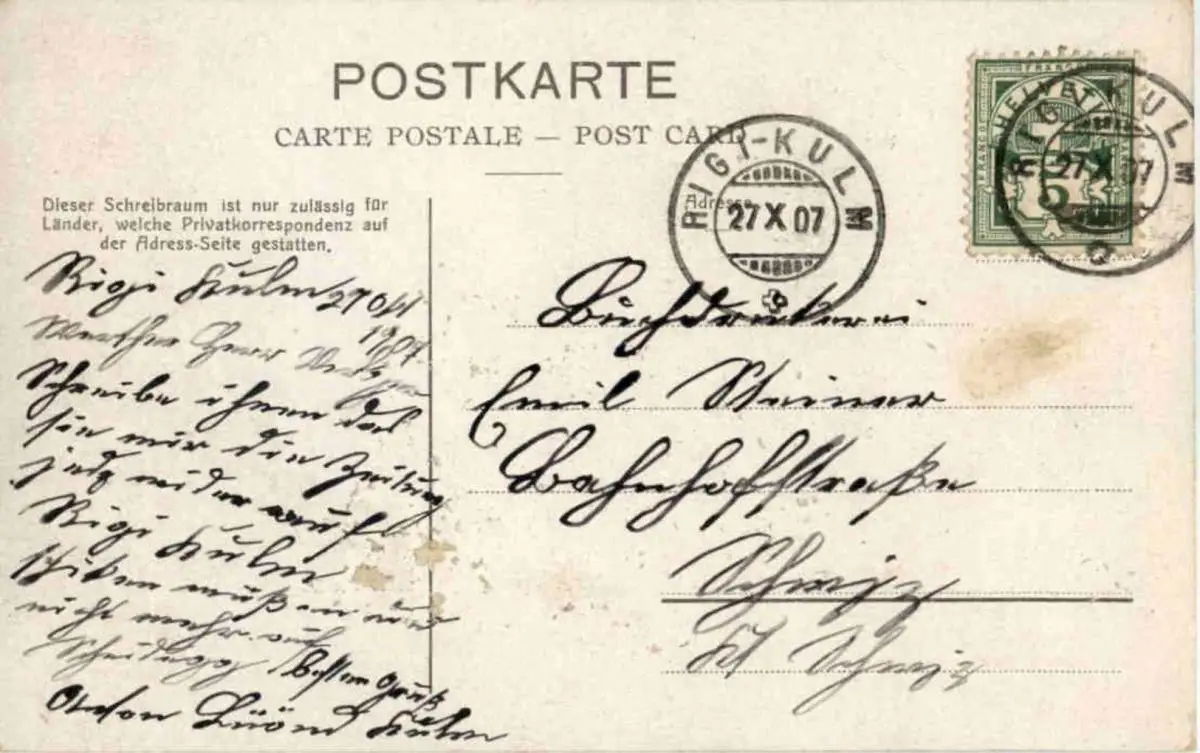 POSTKARTE
CARTE POSTALE — POST CARD
Dieser Schreibraum ist nur zulässig für
Länder, welche Privatkorrespondenz auf
der Adress-Seite gestatten.
Adresse
RIGI-KULM
27 X 07
FRANCO
HELVETIA
FRANCO
5
RIGI-KULM
27 X 07
Rigi Kulm 27 Okt
1907
Werther Herr
Schreibe ihnen das
sie mir die Zeitung
jetz wider auf
Rigi Kulm
schiken müßen und
nicht mehr auf
Scheidegg Besten Gruß
Anton Lüönd Kulm
Buchdrukerei
Emil Steiner
Bahnhofstraße
Schwyz
Kt Schwyz